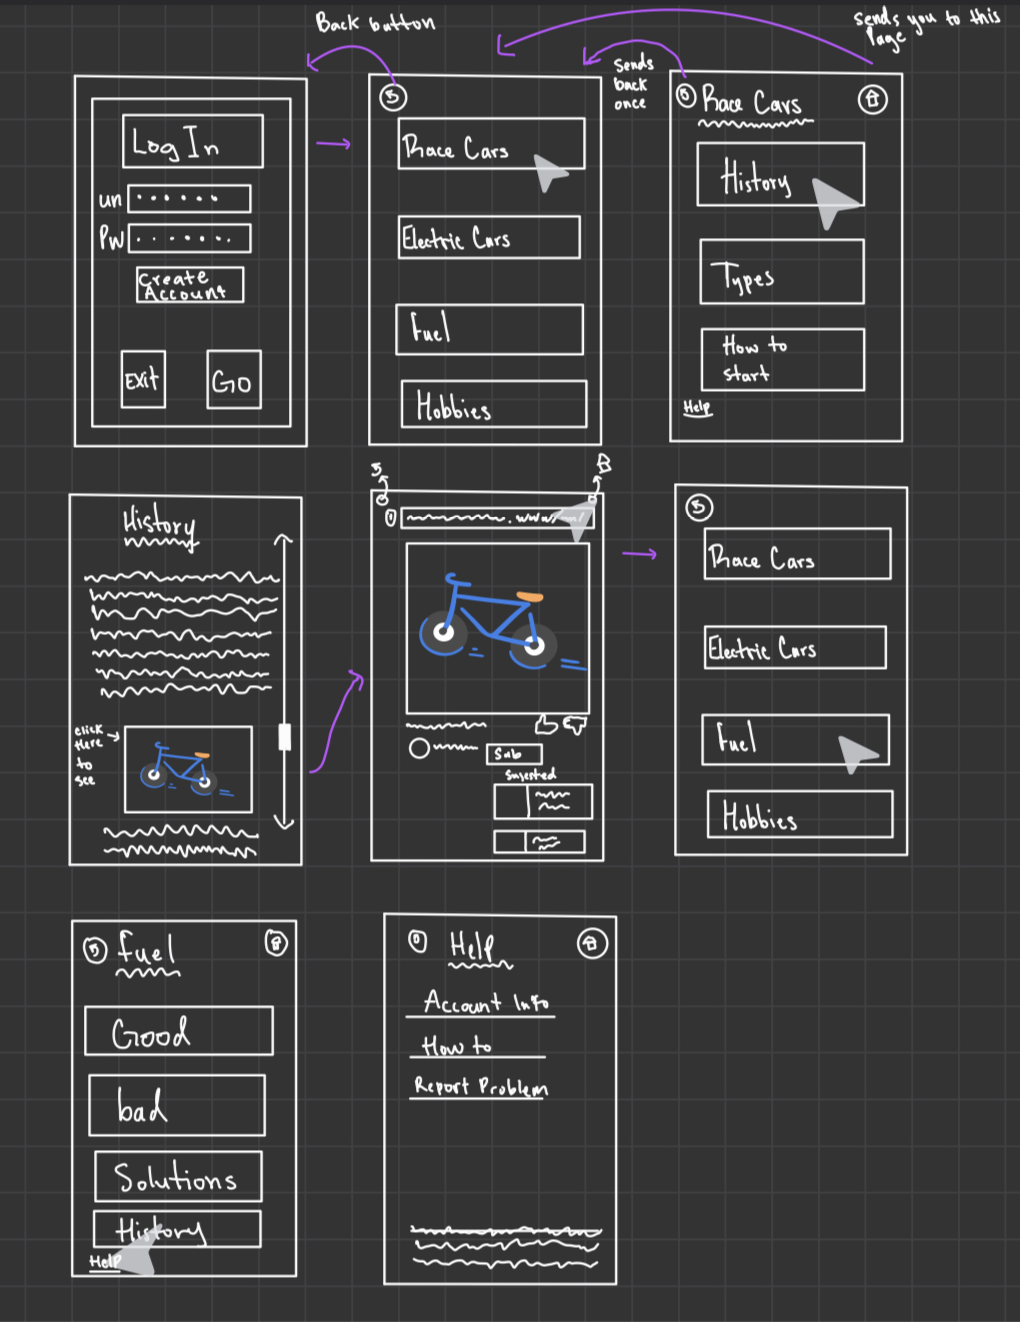 Back button
Sends you to this
Page
Sends
back
once
Log In
un
Pw
Create
Account
Exit
GO
Race Cars
Electric Cars
Fuel
Hobbies
Race Cars
History
Types
How to
start
Help
History
click
Here
to
see
Sub
Sugested
Race Cars
Electric Cars
Fuel
Hobbies
fuel
Good
bad
Solutions
History
Help
Help
Account Info
How to
Report Problem